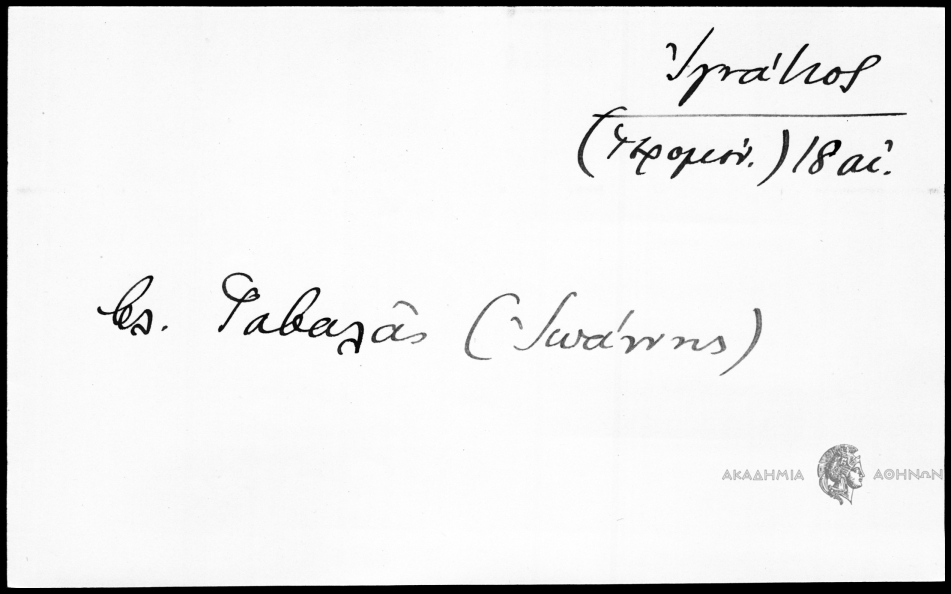 Ἰγνάτιος
(ἱερομόν.) 18 αἰ.
βλ. Γαβαλᾶς (Ἰωάννης)
ΑΚΑΔΗΜΙΑ ΑΘΗΝΩΝ